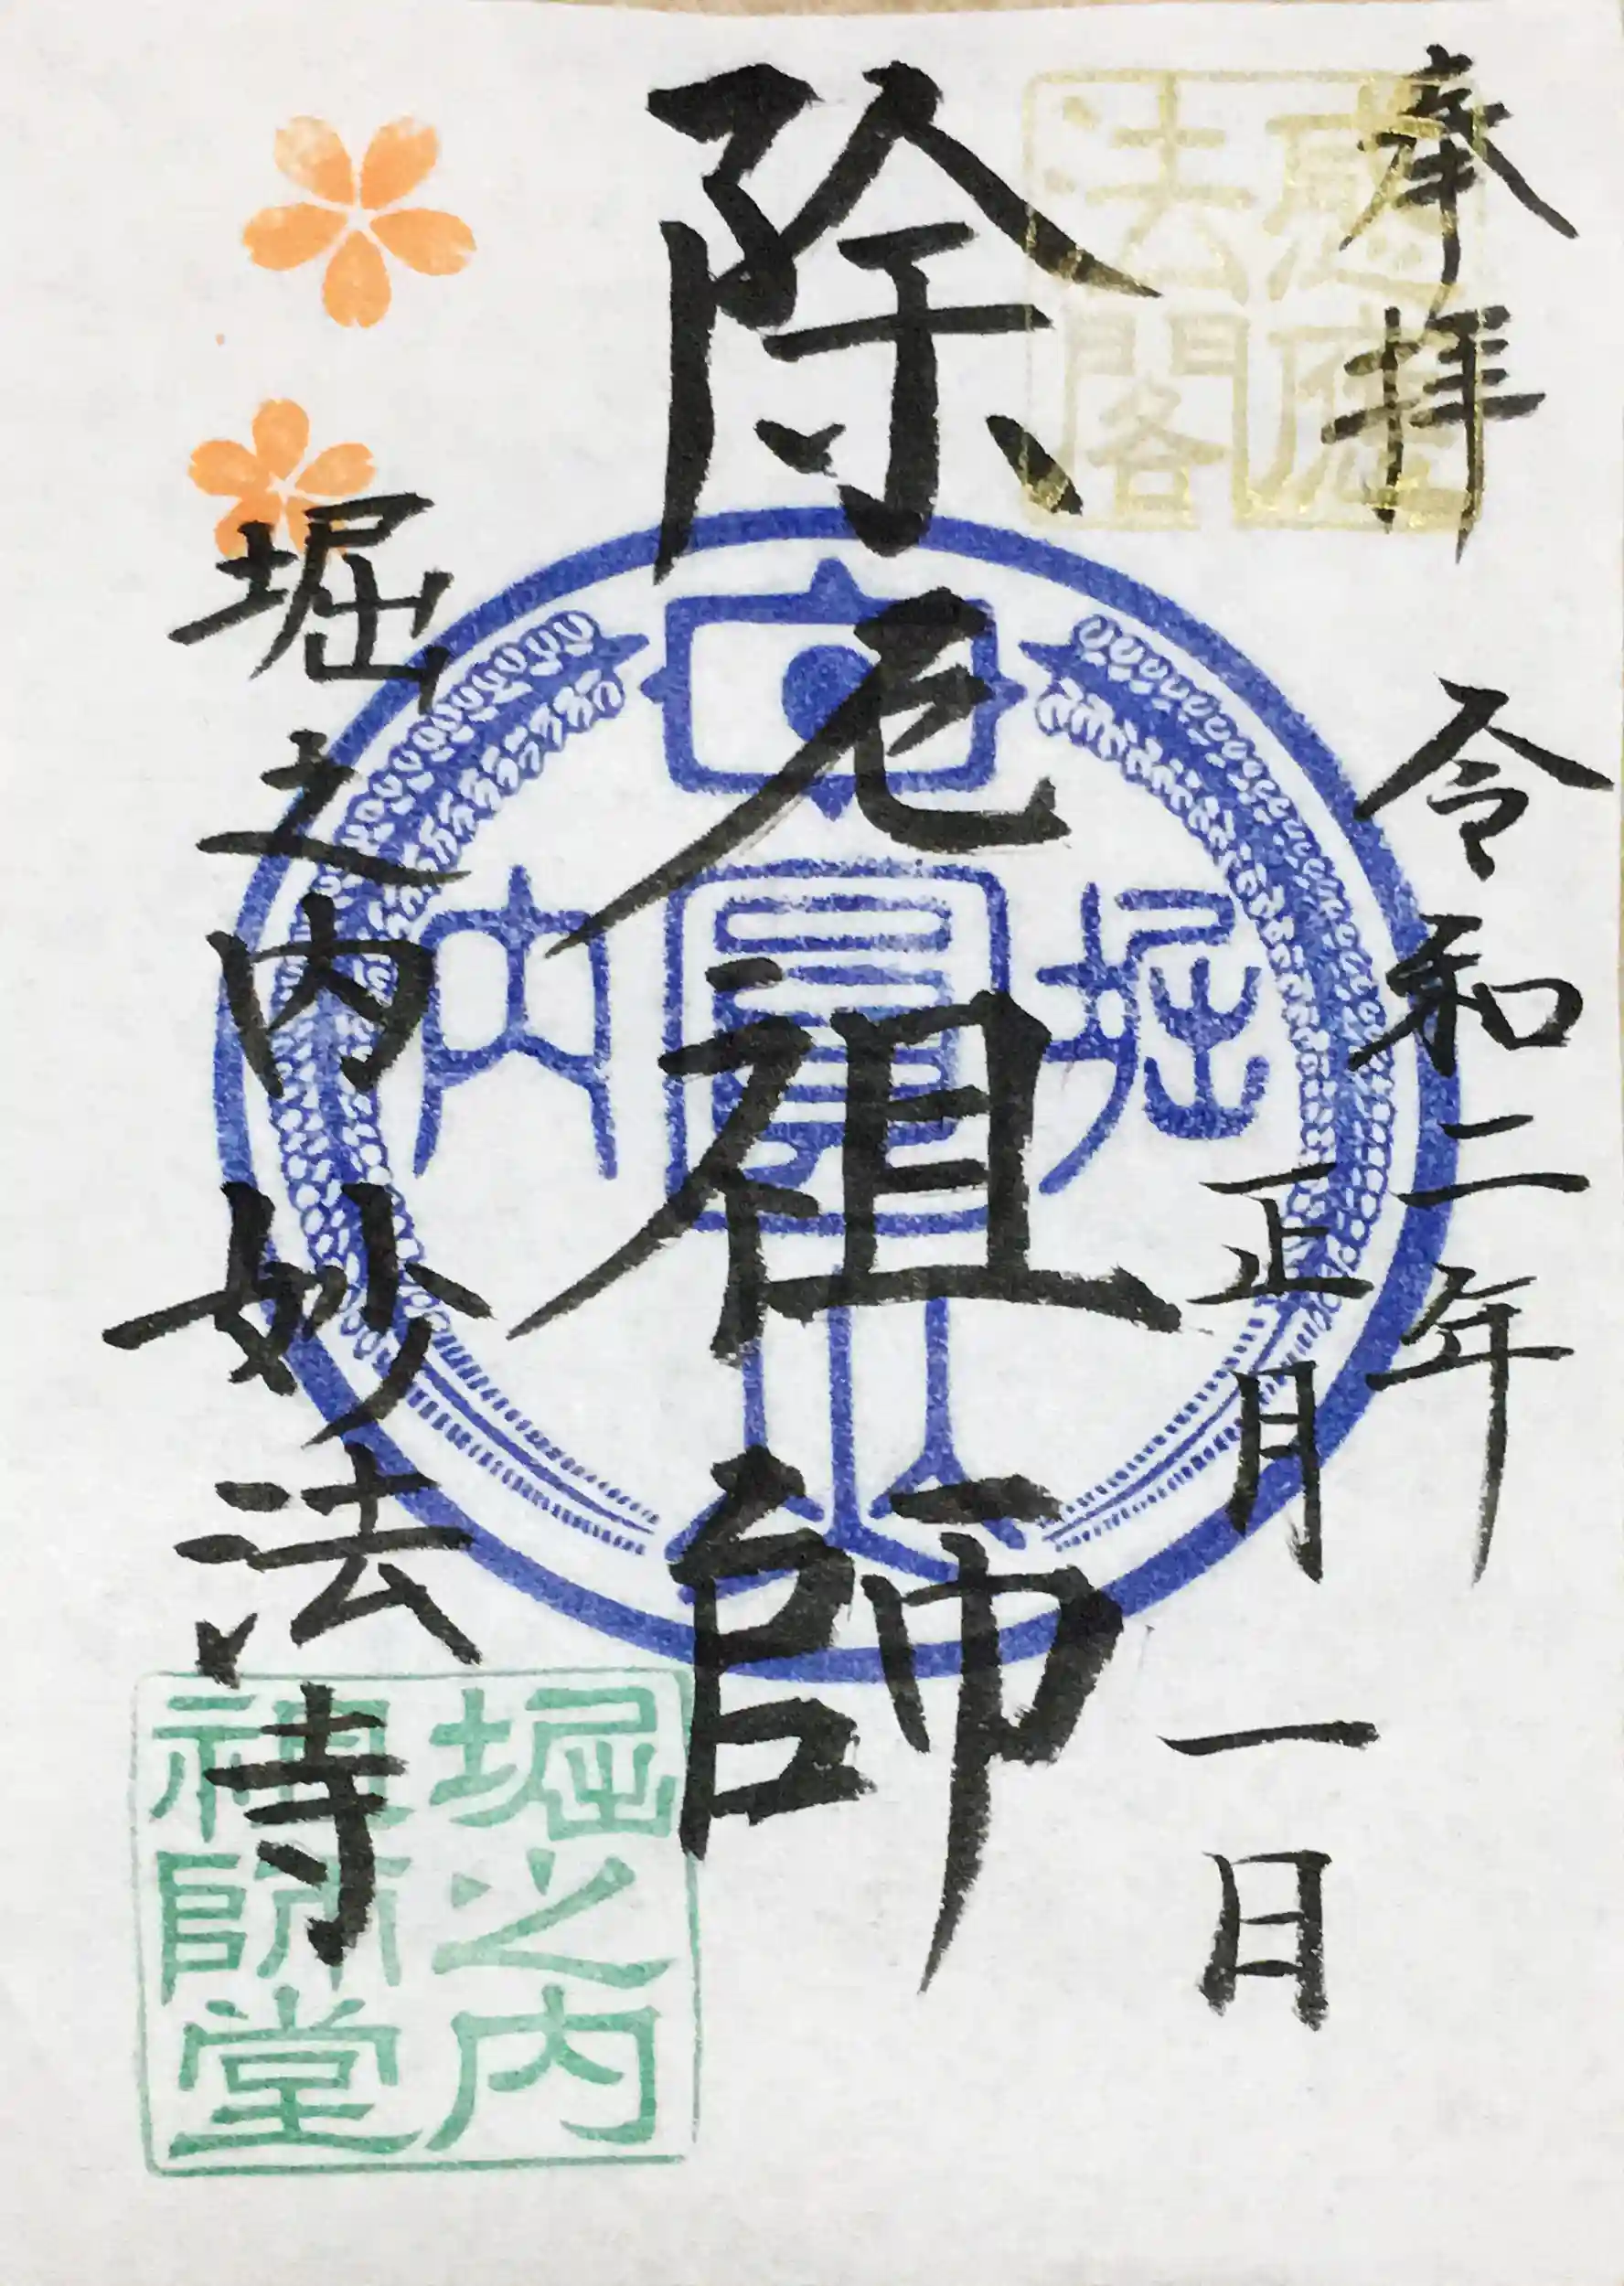 奉拝
令和二年
正月一日
除厄祖師
堀之内 妙法寺
法閣
堀 内
堀之内
祖師堂